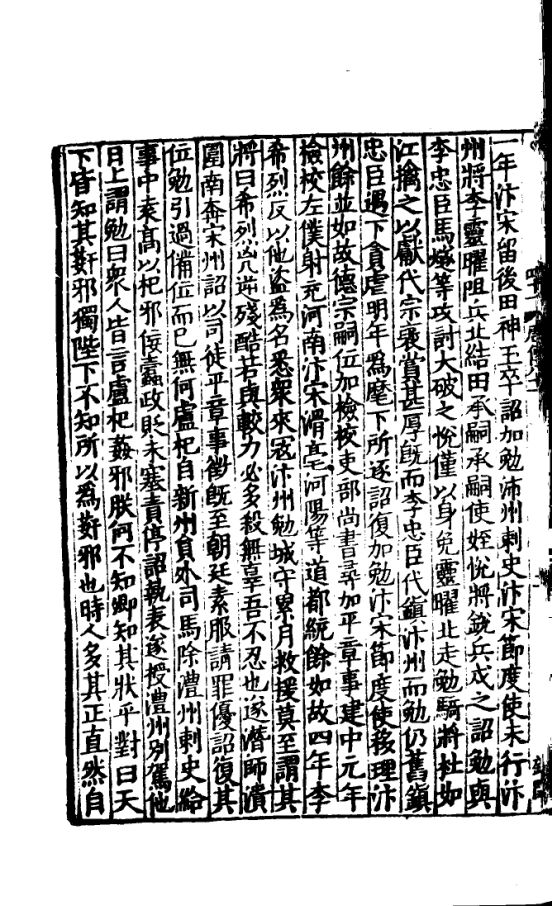 一年汴宋留後田神玉卒詔加勉汴州刺史汴宋節度使未行汴
州將李靈曜阻兵北結田承嗣承嗣使姪悅將銳兵戍之詔勉與
李忠臣馬燧等攻討大破之悅僅以身免靈曜北走勉騎將杜如
江擒之以獻代宗褒賞甚厚旣而李忠臣代鎮汴州而勉仍舊鎮
忠臣遇下貪虐明年爲麾下所逐詔復加勉汴宋節度使移理汴
州餘並如故德宗嗣位加檢校吏部尚書尋加平章事建中元年
檢校左僕射充河南汴宋滑亳河陽等道都統餘如故四年李
希烈反以他盜爲名悉衆來寇汴州勉城守累月救援莫至謂其
將曰希烈兇逆殘酷若與較力必多殺無辜吾不忍也遂潛師潰
圍南奔宋州詔以司徒平章事徵旣至朝廷素服請罪優詔復其
位勉引過備位而已無何盧杞自新州員外司馬除澧州刺史給
事中袁高以杞邪佞蠹政貶未塞責停詔執表遂授澧州別駕他
日上謂勉曰衆人皆言盧杞姦邪朕何不知卿知其狀乎對曰天
下皆知其姦邪獨陛下不知所以爲姦邪也時人多其正直然自